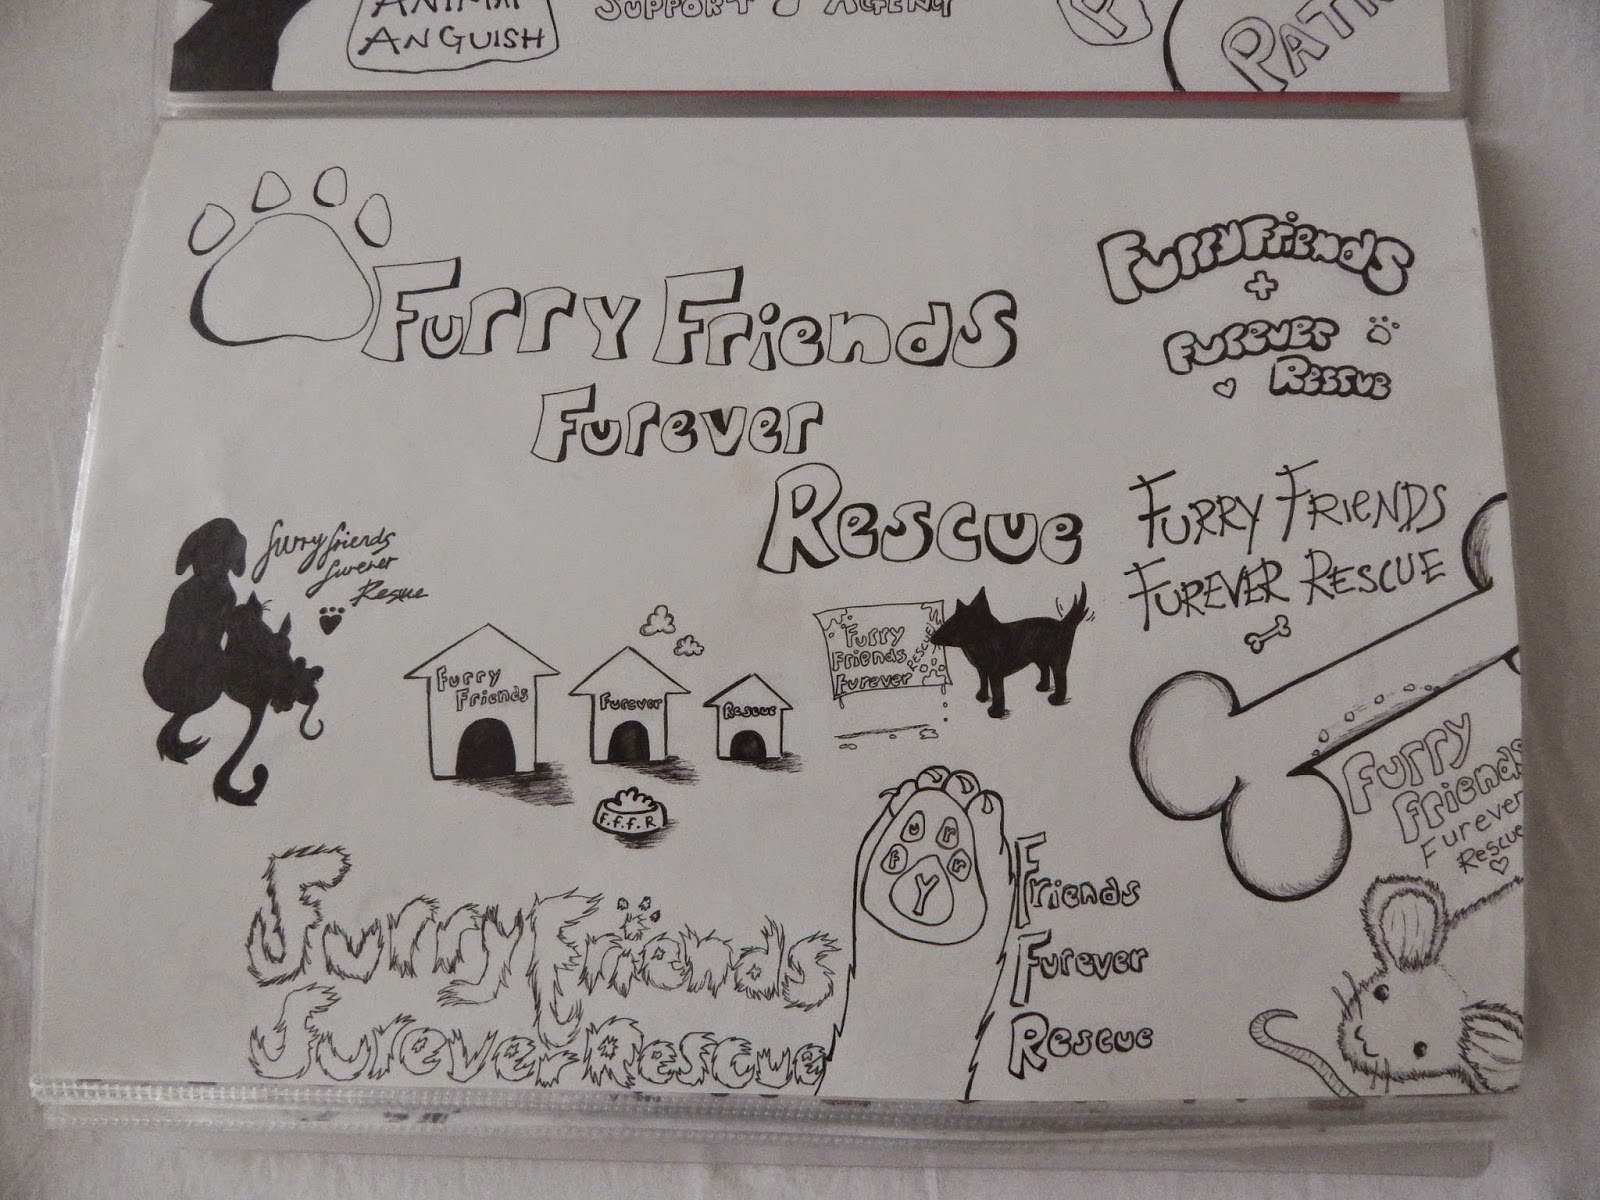 ANIMAL
ANGUISH
SUPPORT AGENCY
P
PAT
Furry Friends
Furever
Rescue
Furry Friends
+
Furever
Rescue
furry friends
furever
Rescue
Furry
Friends
Furever
Rescue
Furry
Friends
Furever
RESCUE
FURRY FRIENDS
FUREVER RESCUE
F.f.f.R
Furry
Friends
Furever
Rescue
Furry Friends
Furever Rescue
furry
Friends
Furever
Rescue